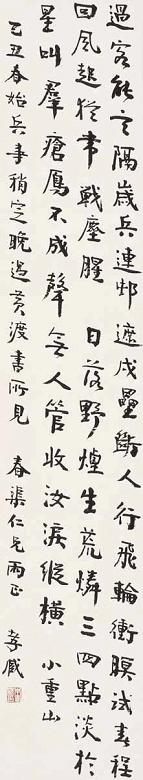 過客能言隔歲兵連邨遮戍壘斷人行飛輪衝瞑試春程
回風起猶帶戰塵腥　日落野煙生荒燐三四點淡於
星叫群瘡鴈不成聲無人管收汝淚縱橫　小重山
乙丑春始兵事稍定晚過黃渡書所見　春渠仁兄兩正　孝臧